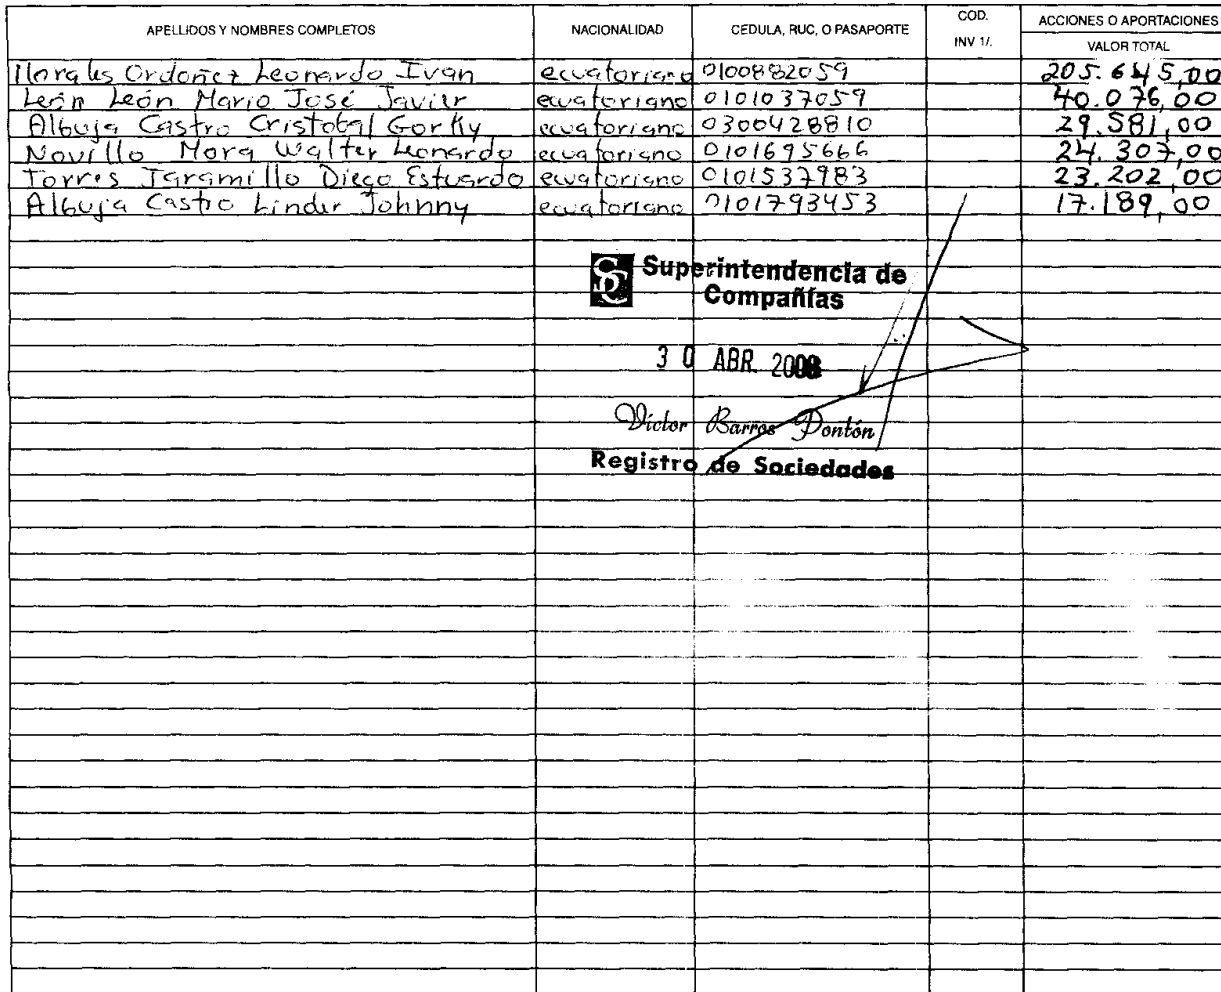 APELLIDOS Y NOMBRES COMPLETOS NACIONALIDAD CEDULA, RUC, O PASAPORTE COD. INV 1/. ACCIONES O APORTACIONES
VALOR TOTAL
Morales Ordoñez Leonardo Ivan ecuatoriano 0100882059 205.645,00
León León Mario José Javier ecuatoriano 0101037059 40.076,00
Albuja Castro Cristobal Gorky ecuatoriano 0300428810 29.581,00
Novillo Mora Walter Leonardo ecuatoriano 0101695666 24.307,00
Torres Jaramillo Diego Estuardo ecuatoriano 0101537983 23.202,00
Albuja Castro Linder Johnny ecuatoriano 0101793453 17.189,00
Superintendencia de
Compañías
30 ABR. 2008
Víctor Barros Pontón
Registro de Sociedades